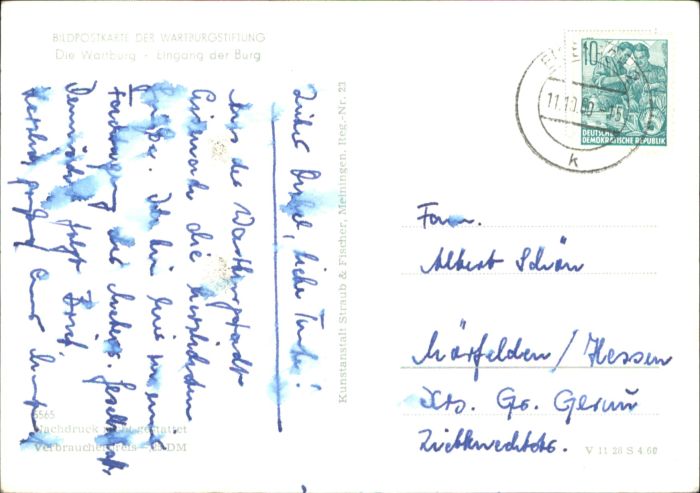 BILDPOSTKARTE DER WARTBURGSTIFTUNG
Die Wartburg - Eingang der Burg
Lieber Onkel, liebe Tante!
Aus der Wartburgstadt
Eisenach die herzlichsten
Grüße. Ich bin hier zu einer
Tagung der
Demnächst folgt Brief.
Herzlich grüßt Euer
5565
Nachdruck nicht gestattet
Verbraucherpreis DM
Kunstanstalt Straub & Fischer, Meiningen, Reg.-Nr. 23
10
DEUTSCHE
DEMOKRATISCHE REPUBLIK
11.10.60
k
Fam.
Albert Schön
Mörfelden/Hessen
Krs. Gr. Gerau
V 11 28 S 4.60